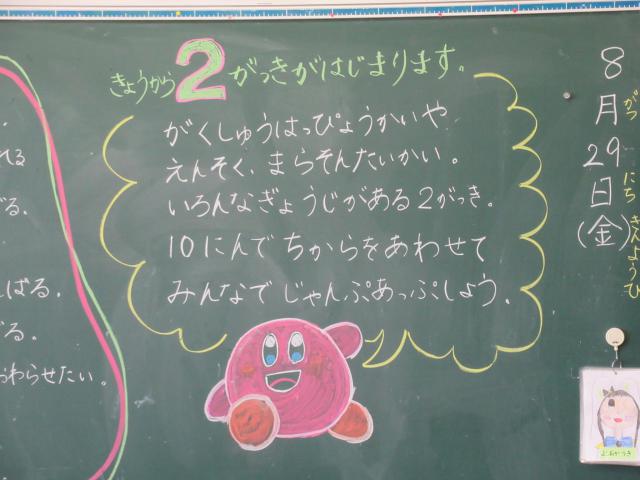 きょうから2がっきがはじまります。
がくしゅうはっぴょうかいや
えんそく、まらそんたいかい。
いろんなぎょうじがある2がっき。
10にんでちからをあわせて
みんなでじゃんぷあっぷしょう。
8月29日(金)
がつ にち きんようび
れる
る.
ばる.
る.
わらせたい。